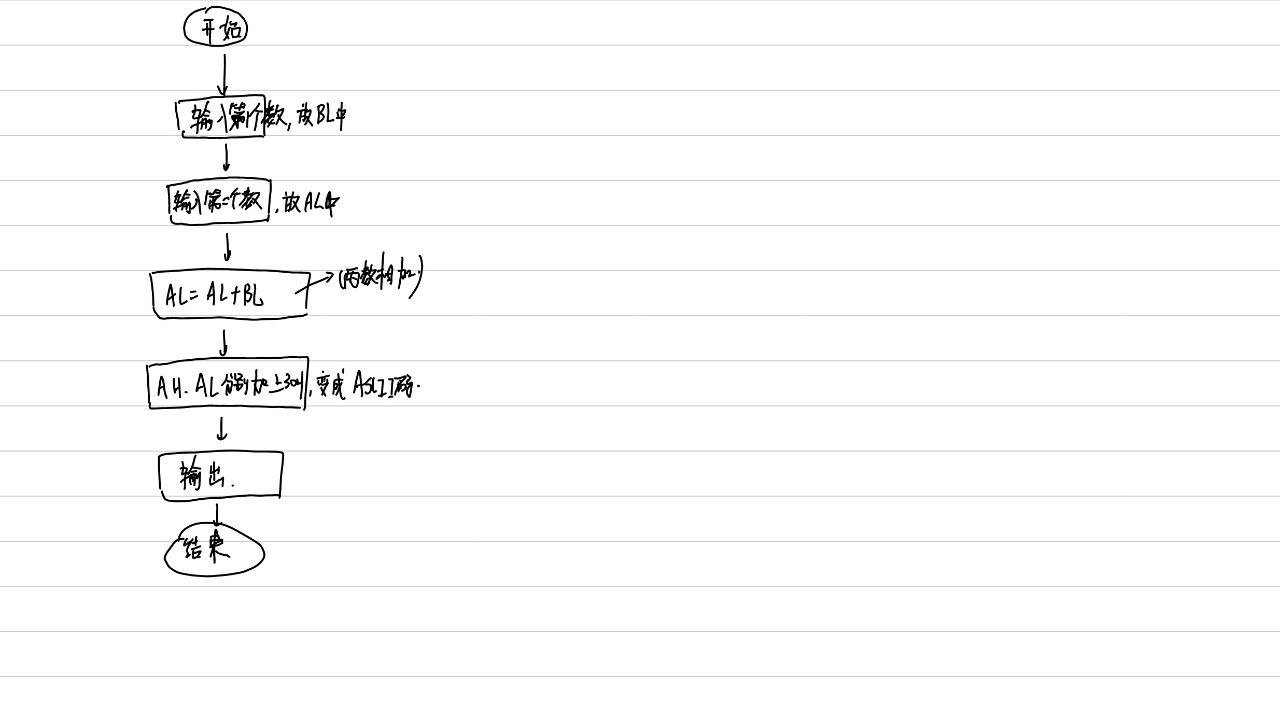 开始
输入第1个数,放BL中
输入第二个数,放AL中
AL=AL+BL
(两数相加)
AH.AL分别加上30H,变成ASCII码.
输出.
结束